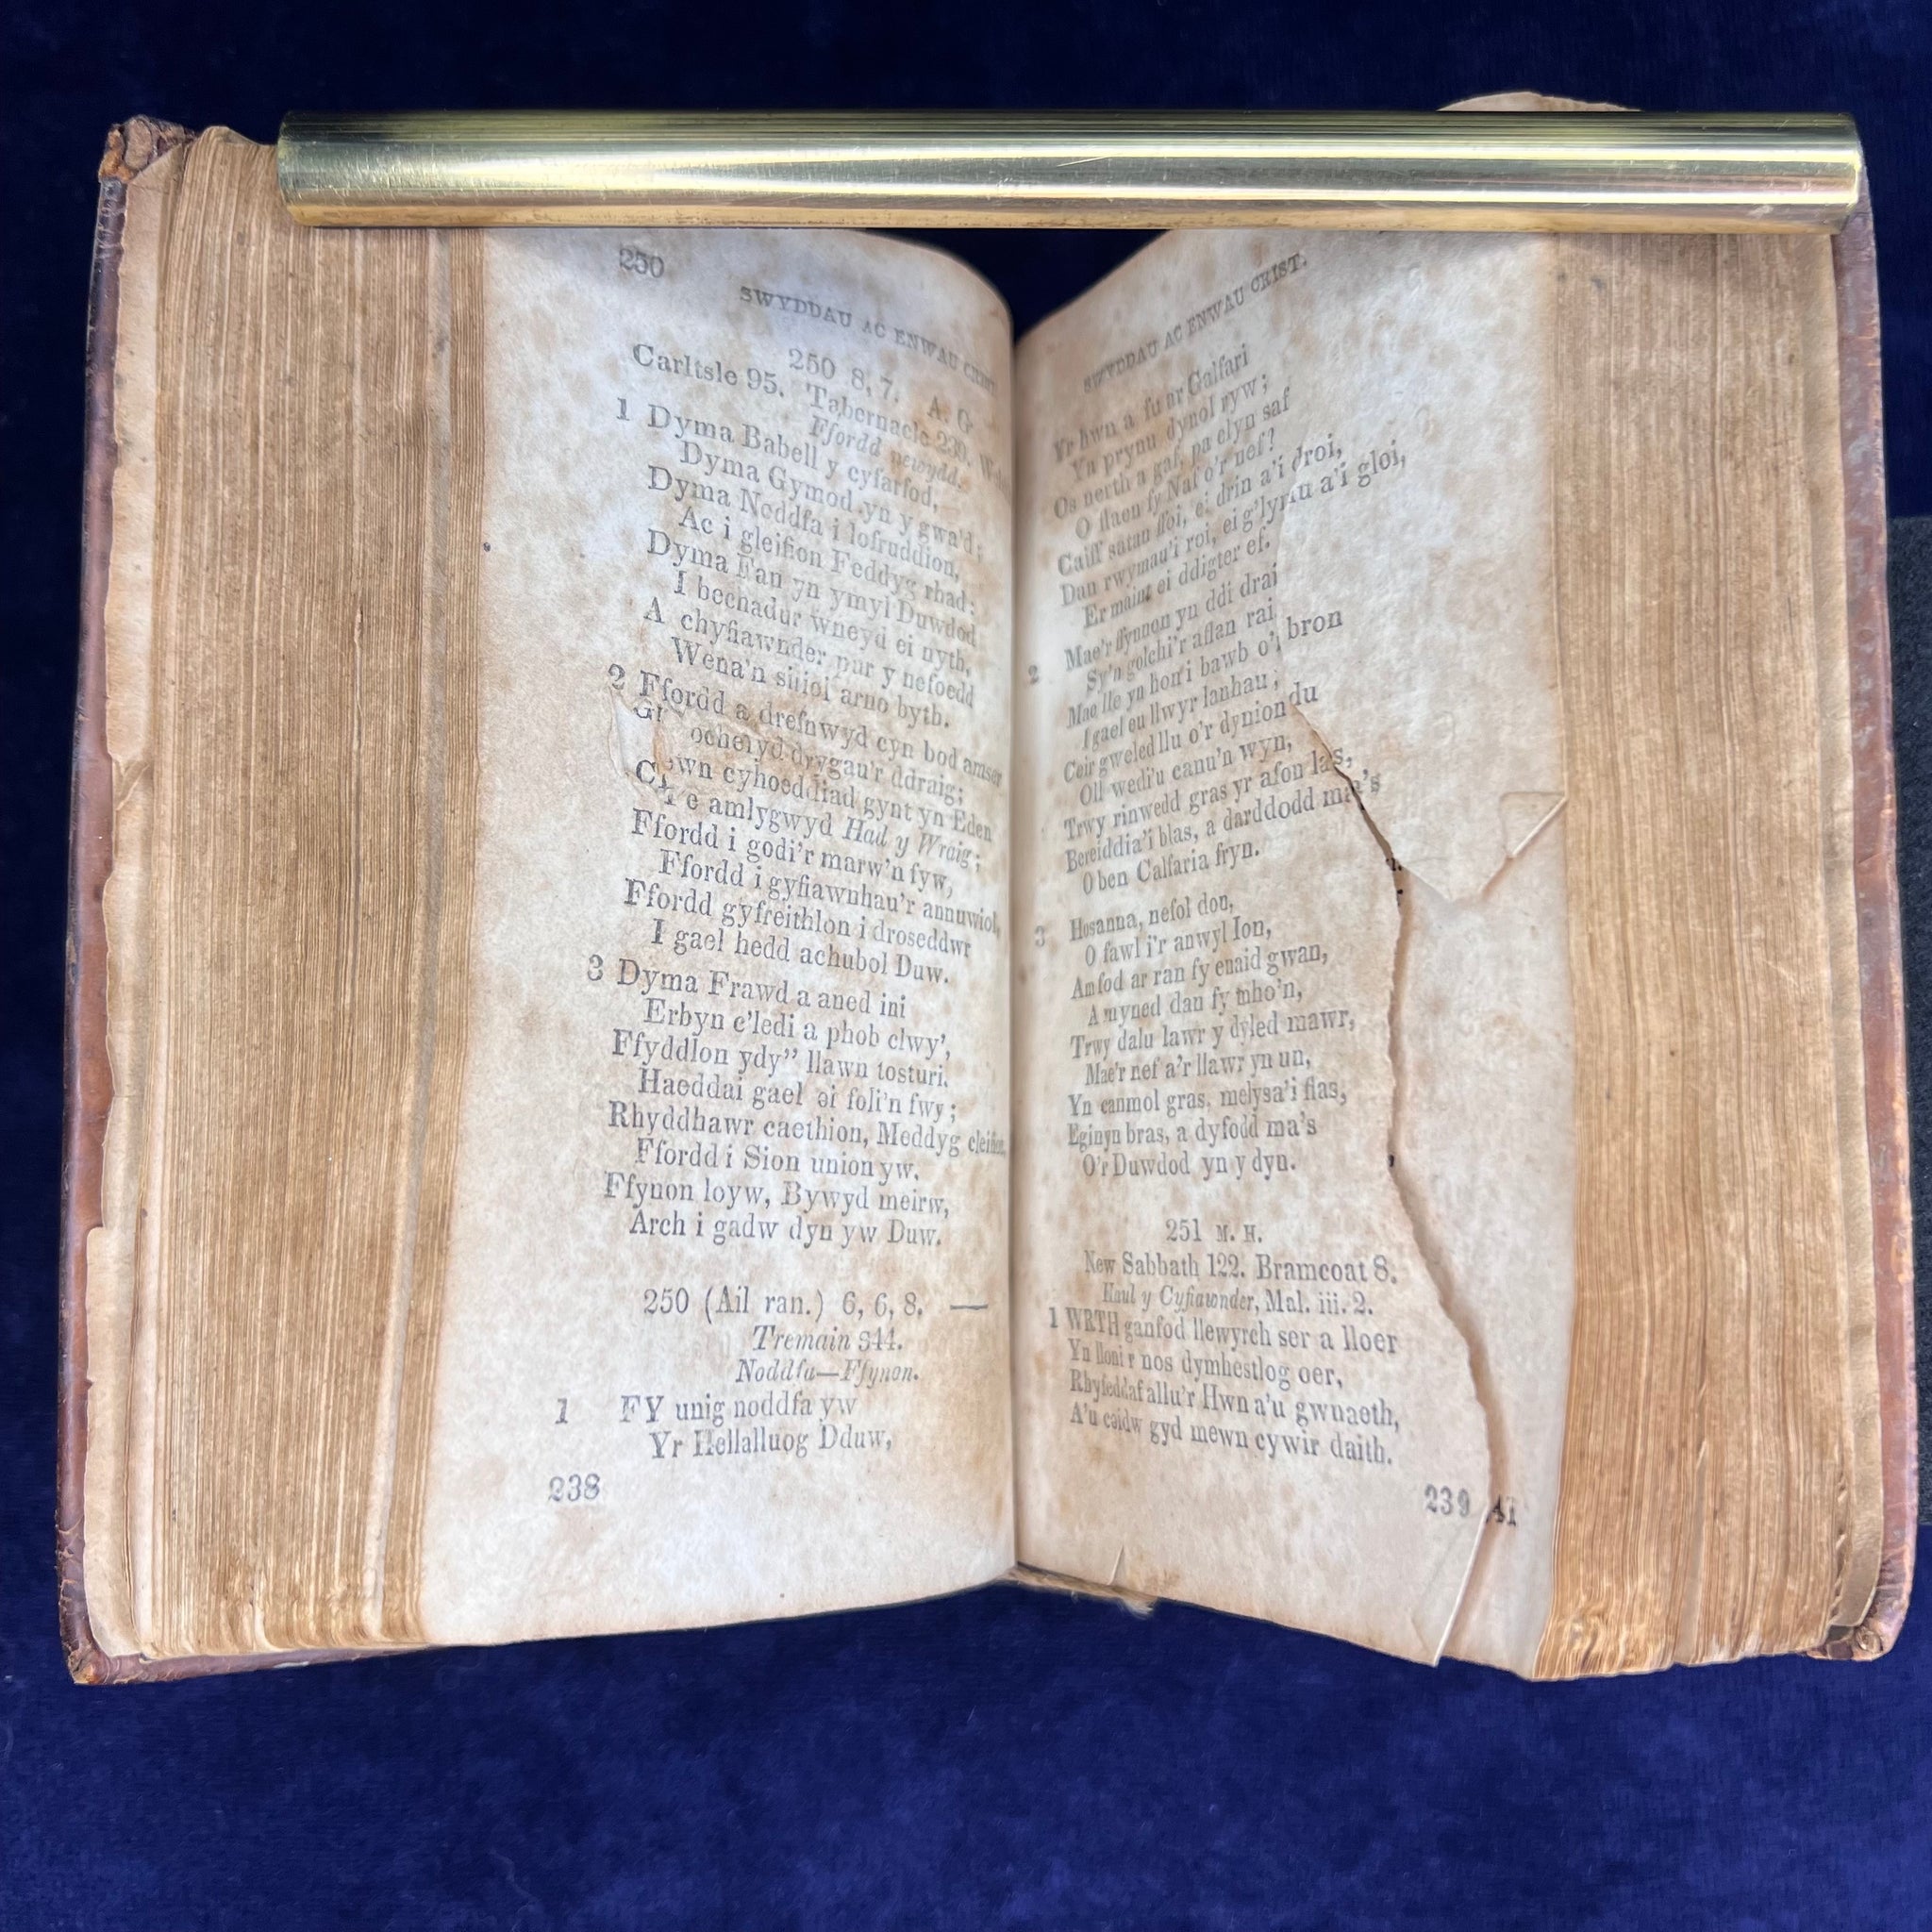 250
SWYDDAU AC ENWAU CRIST.
250 8, 7. A. G
Carltsle 95. Tabernacle 239.
Ffordd newydd.
1 Dyma Babell y cyfarfod,
Dyma Gymod yn y gwa'd;
Dyma Noddfa i lofruddion,
Ac i gleifion Feddyg rhad:
Dyma Fan yn ymyl Duwdod
I bechadur wneyd ei nyth,
A chyfiawnder pur y nefoedd
Wena'n siriol arno byth.
2 Ffordd a drefnwyd cyn bod amser
ochelyd drygau'r ddraig;
cyhoeddiad gynt yn Eden
e amlygwyd Had y Wraig;
Ffordd i godi'r marw'n fyw,
Ffordd i gyfiawnhau'r annuwiol,
Ffordd gyfreithlon i droseddwr
I gael hedd achubol Duw.
3 Dyma Frawd a aned ini
Erbyn c'ledi a phob clwy',
Ffyddlon ydy” llawn tosturi.
Haeddai gael ei foli'n fwy;
Rhyddhawr caethion, Meddyg cleifion,
Ffordd i Sion union yw.
Ffynon loyw, Bywyd meirw,
Arch i gadw dyn yw Duw.
250 (Ail ran.) 6, 6, 8. —
Tremain 344.
Noddfa—Ffynon.
1 FY unig noddfa yw
Yr Hollalluog Dduw,
238
SWYDDAU AC ENWAU CRIST.
Yr hwn a fu ar Galfari
Yn prynu dynol ryw;
Os nerth a gaf, pa elyn saf
O flaen fy Naf o'r nef?
Caiff satan ffoi, ei drin a'i droi,
Dan rwymau'i roi, ei g'lymu a'i gloi,
Er maint ei ddigter ef.
2 Mae'r ffynnon yn ddi drai
Sy'n golchi'r aflan rai
Mae lle yn hon i bawb o'i bron
I gael eu llwyr lanhau;
Ceir gweled llu o'r dynion du
Oll wedi'u canu'n wyn,
Trwy rinwedd gras yr afon las,
Bereiddia'i blas, a darddodd ma's
O ben Calfaria fryn.
3 Hosanna, nefol don,
O fawl i'r anwyl Ion,
Am fod ar ran fy enaid gwan,
A myned dan fy mho'n,
Trwy dalu lawr y dyled mawr,
Mae'r nef a'r llawr yn un,
Yn canmol gras, melysa'i flas,
Eginyn bras, a dyfodd ma's
O'r Duwdod yn y dyn.
251 M. H.
New Sabbath 122. Bramcoat 8.
Haul y Cyfiawnder, Mal. iii. 2.
1 WRTH ganfod llewyrch ser a lloer
Yn lloni'r nos dymhestlog oer,
Rhyfeddaf allu'r Hwn a'u gwnaeth,
A'u ceidw gyd mewn cywir daith.
239 41